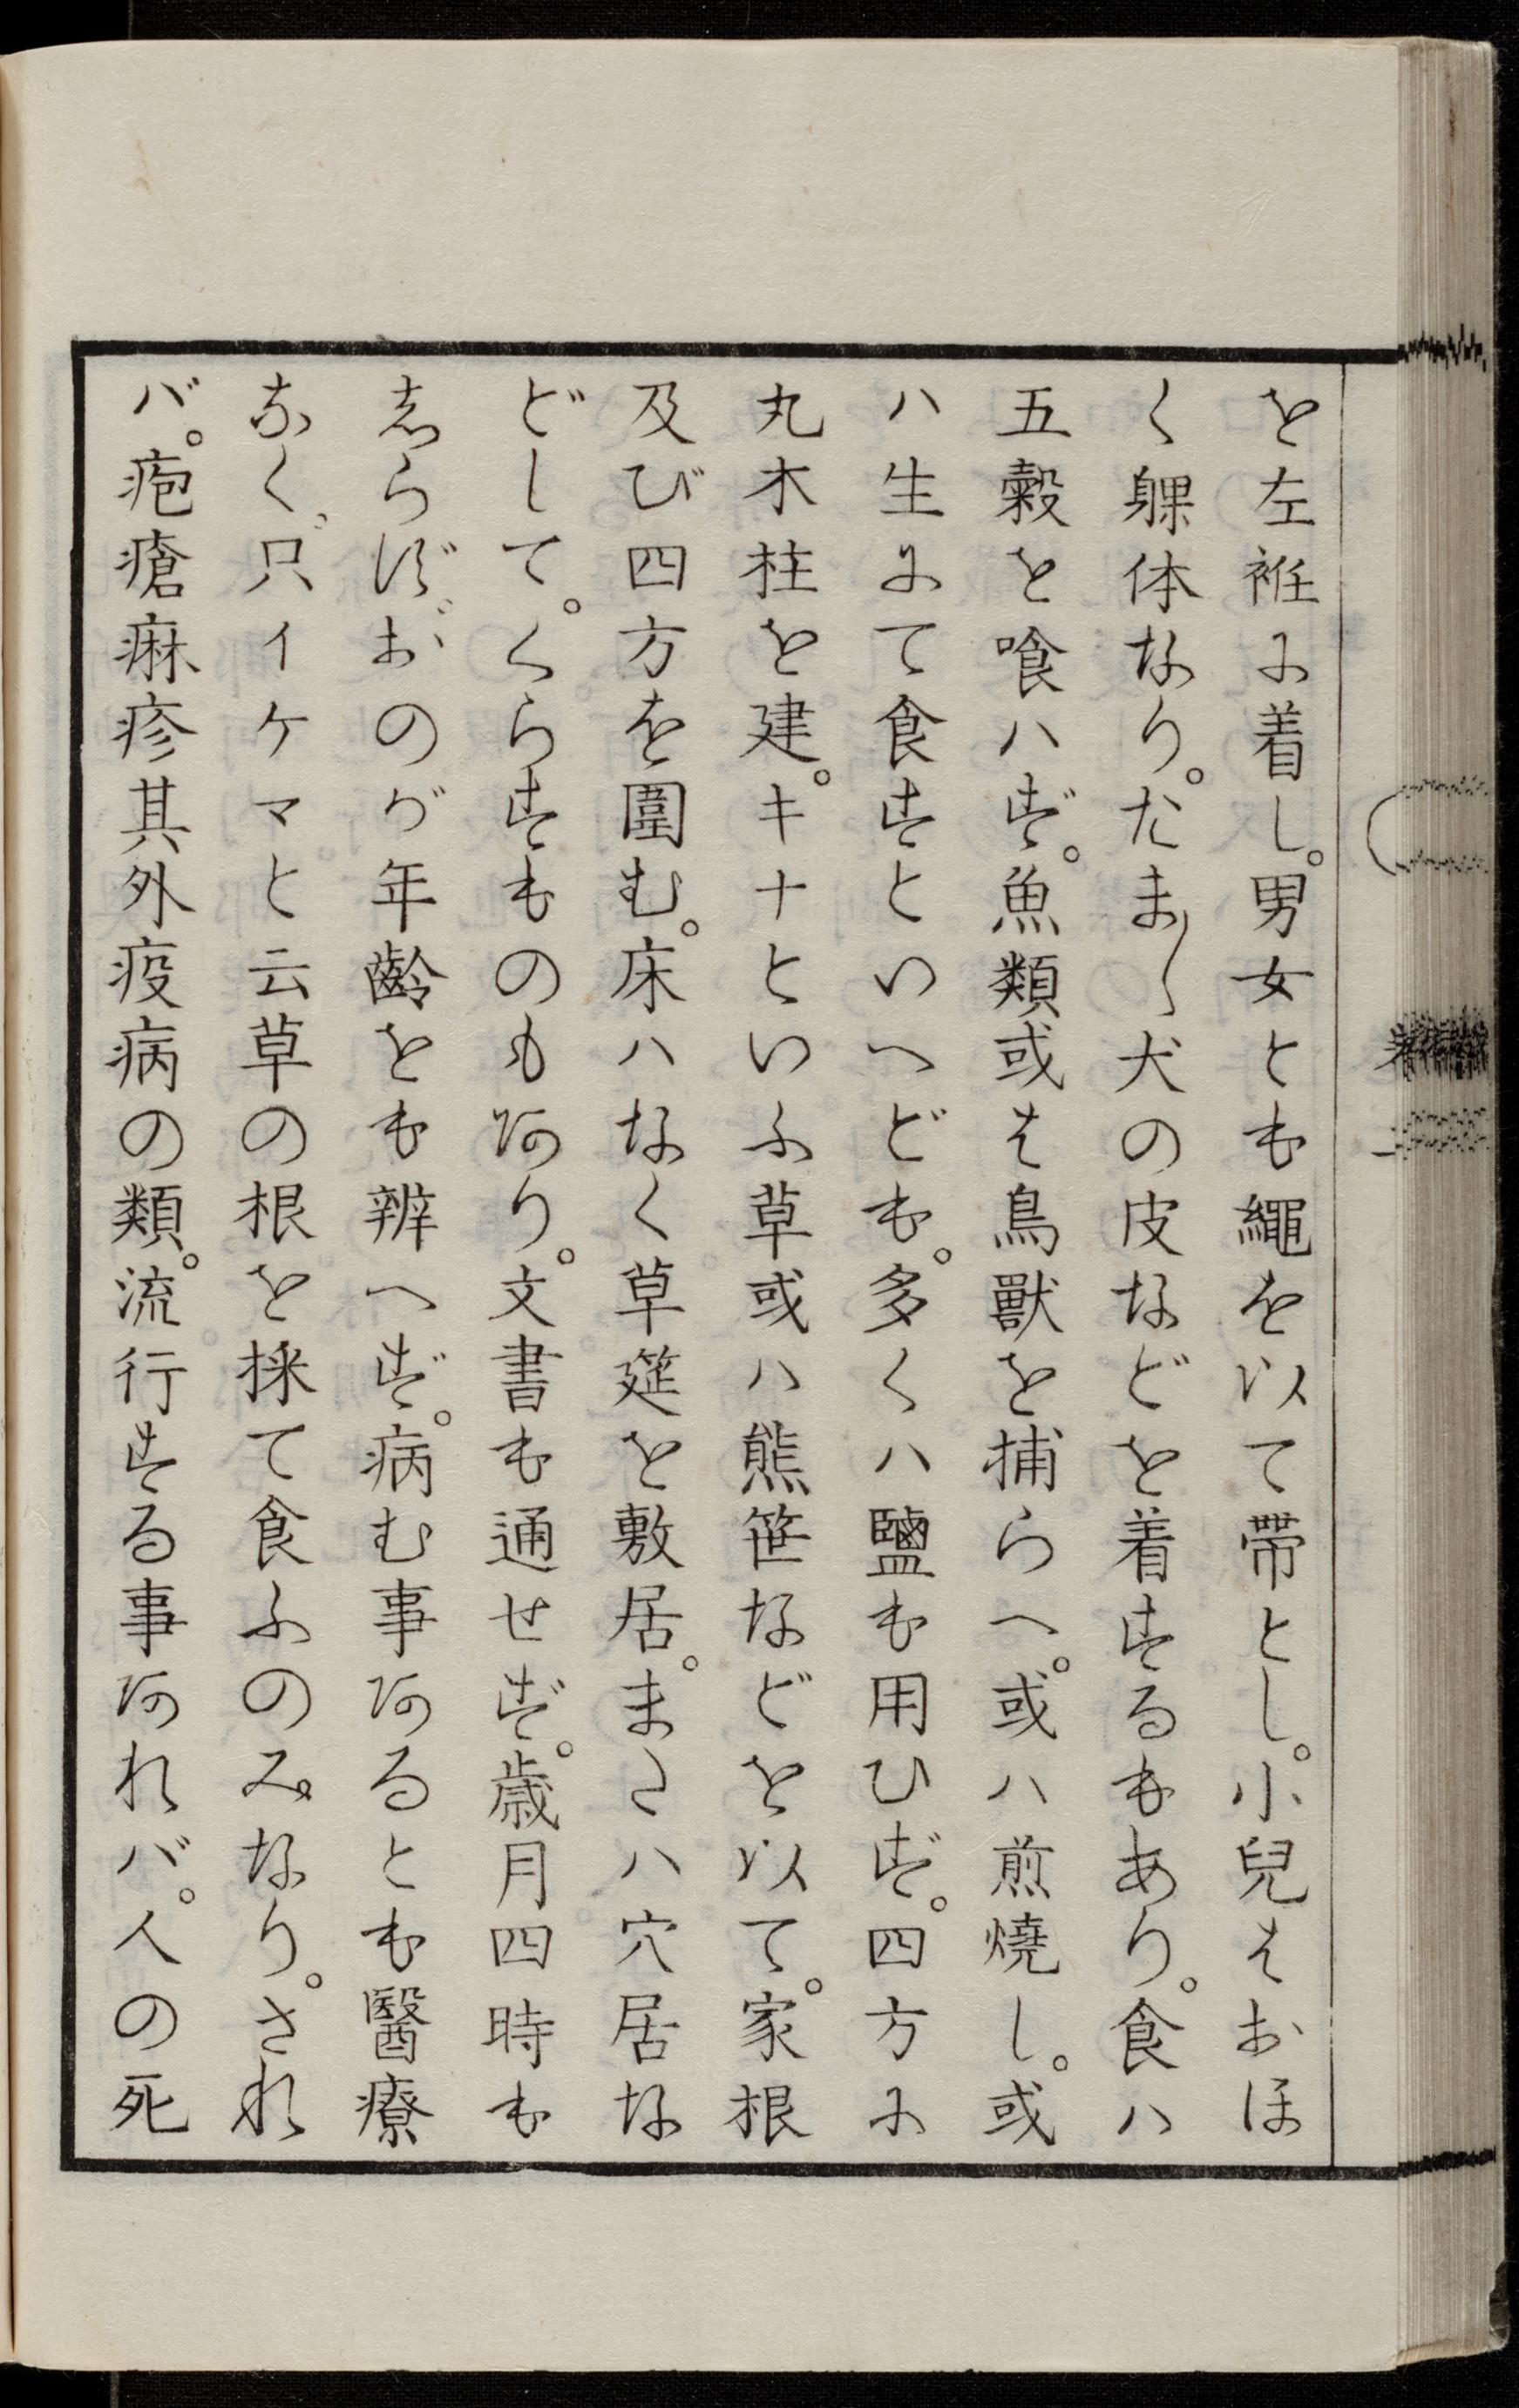 を左袵に着し。男女とも繩を以て帶とし。小兒はおほ
く躶体なり。たま〱犬の皮などを着するもあり。食ハ
五穀を喰ハず。魚類或は鳥獸を捕らへ。或ハ煎燒し。或
ハ生にて食すといへども。多くハ鹽も用ひず。四方に
丸木柱を建。キナといふ草或ハ熊笹などを以て。家根
及び四方を圍む。床ハなく草筵を敷居。またハ穴居な
どして。くらすものもあり。文書も通せず。歳月四時も
しらず。おのが年齡をも辨へず。病む事あるとも醫療
なく。只イケマと云草の根を採て食ふのみなり。され
バ。疱瘡痳疹其外疫病の類。流行する事あれバ。人の死